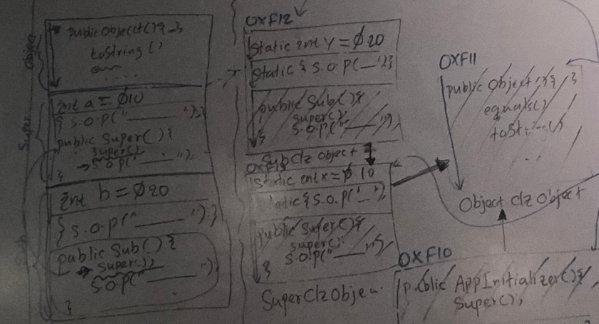 Object
public Object(){ }
toString()
Super
int a = 010
{ S.O.P("____");}
public Super(){
super();
S.O.P("____");
}
Sub
int b = 020
{ S.O.P("____")}
public Sub(){
super();
S.O.P("____");
}
OXF12
static int y = 020
static { S.O.P(____")}
public Sub(){
super();
S.O.P("____");
}
Sub Clz Object
static int x = 010
static { S.O.P("__")}
public Super(){
super();
S.O.P("____");
}
Super Clz Objec
OXF11
public Object(){ }
equals()
toSt
Object Clz Object
OXF10
public AppInitializer(){
Super();